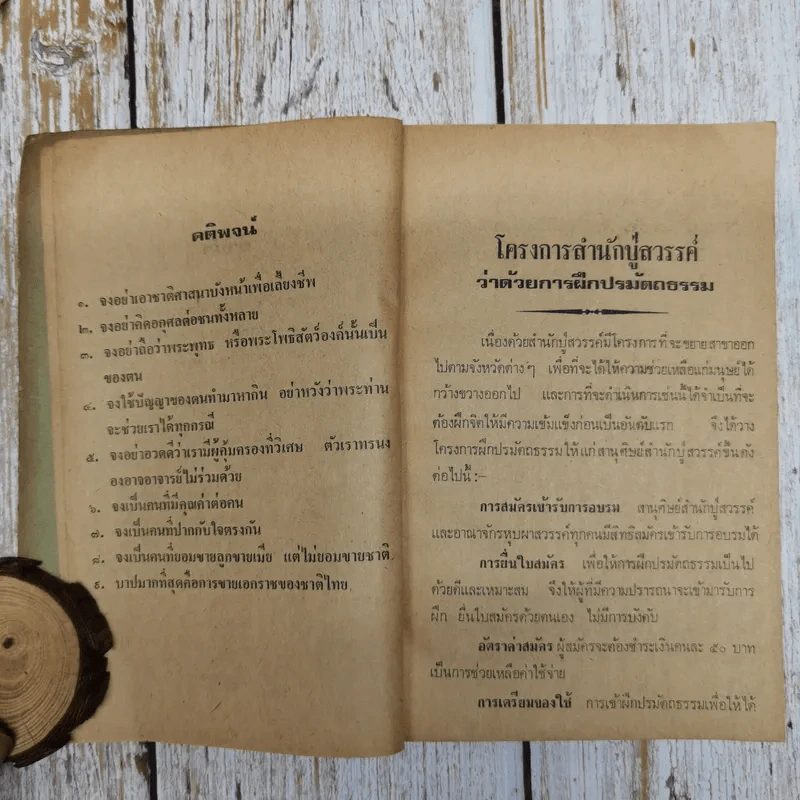 คติพจน์
๑. จงอย่าเอาชาติศาสนาบังหน้าเพื่อเลี้ยงชีพ
๒. จงอย่าคิดอกุศลต่อชนทั้งหลาย
๓. จงอย่าถือว่าพระพุทธ หรือพระโพธิสัตว์องค์นั้นเป็น
ของตน
๔. จงใช้ปัญญาของตนทำมาหากิน อย่าหวังว่าพระท่าน
จะช่วยเราได้ทุกกรณี
๕. จงอย่าอวดดีว่าเรามีผู้คุ้มครองที่วิเศษ ตัวเราทรนง
องอาจอาจารย์ไม่ร่วมด้วย
๖. จงเป็นคนที่มีคุณค่าต่อคน
๗. จงเป็นคนที่ปากกับใจตรงกัน
๘. จงเป็นคนที่ยอมขายลูกขายเมีย แต่ไม่ยอมขายชาติ
๙. บาปมากที่สุดคือการขายเอกราชของชาติไทย
โครงการสำนักปู่สวรรค์
ว่าด้วยการฝึกปรมัตถธรรม
เนื่องด้วยสำนักปู่สวรรค์มีโครงการที่จะขยายสาขาออก
ไปตามจังหวัดต่างๆ เพื่อที่จะได้ให้ความช่วยเหลือแก่มนุษย์ได้
กว้างขวางออกไป และการที่จะดำเนินการเช่นนี้ได้จำเป็นที่จะ
ต้องฝึกจิตให้มีความเข้มแข็งก่อนเป็นอันดับแรก จึงได้วาง
โครงการฝึกปรมัตถธรรมให้แก่สานุศิษย์สำนักปู่สวรรค์ขึ้นดัง
ต่อไปนี้ :-
การสมัครเข้ารับการอบรม สานุศิษย์สำนักปู่สวรรค์
และอาณาจักรหุบผาสวรรค์ทุกคนมีสิทธิสมัครเข้ารับการอบรมได้
การยื่นใบสมัคร เพื่อให้การฝึกปรมัตถธรรมเป็นไป
ด้วยดีและเหมาะสม จึงให้ผู้ที่มีความปรารถนาจะเข้ามารับการ
ฝึก ยื่นใบสมัครด้วยตนเอง ไม่มีการบังคับ
อัตราค่าสมัคร ผู้สมัครจะต้องชำระเงินคนละ ๕๐ บาท
เป็นการช่วยเหลือค่าใช้จ่าย
การเตรียมของใช้ การเข้าฝึกปรมัตถธรรมเพื่อให้ได้